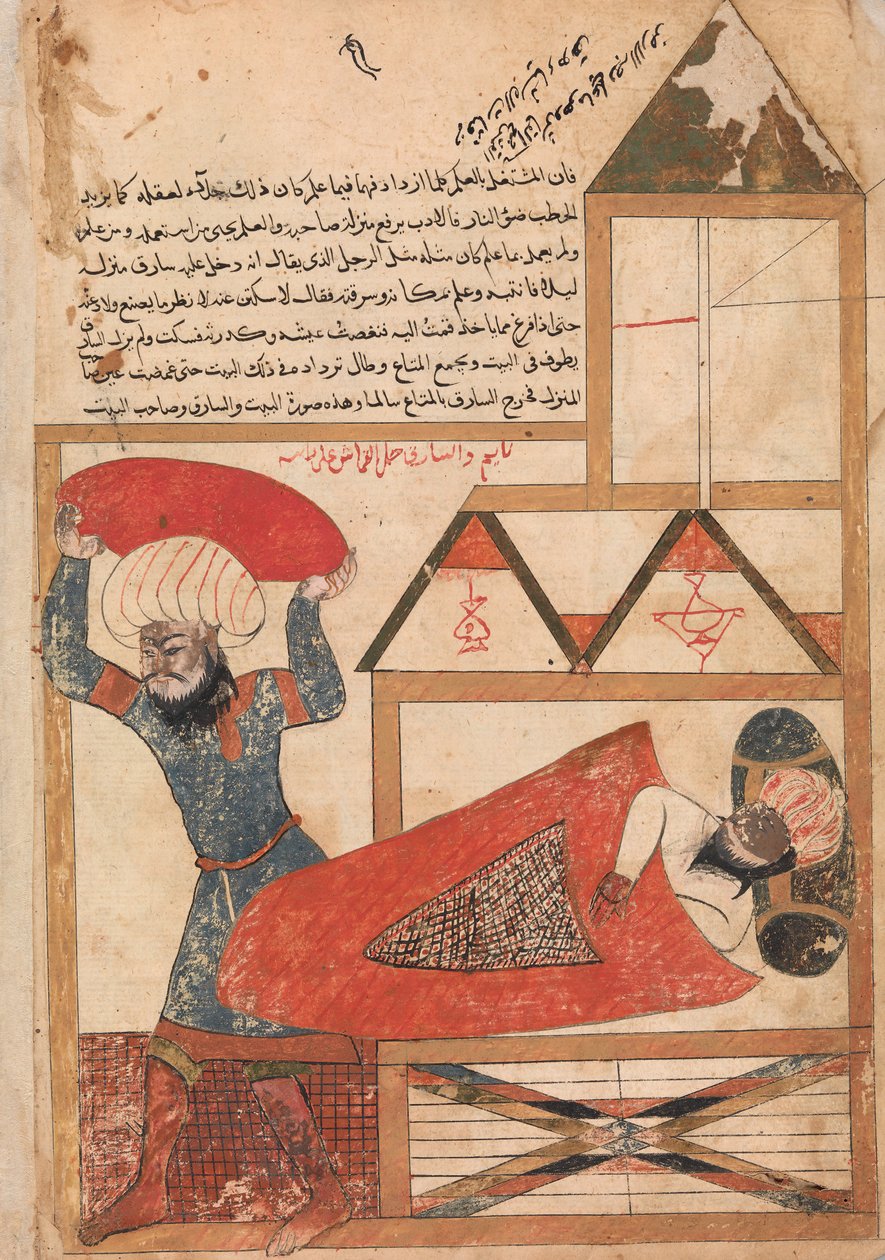 فان المشتغل بالعلم كلما ازداد فهما فيما علم كان ذلك جلآء لعقله كما يزيد
الحطب ضوؤ النار قال الادب يرفع منزلة صاحبه والعلم يحيى من استعمله ومن علم
ولم يعمل بما علم كان مثله مثل الرجل الذى يقال انه دخل عليه سارق منزله
ليلا فانتبه وعلم بمكانه وسرقته فقال لاسكتن عنه لانظر ما يصنع ولادعنه
حتى اذا فرغ مما ياخذه قمت اليه فنغصت عيشه وكدرته فسكت ولم يزل السارق
يطوف فى البيت ويجمع المتاع وطال ترداده فى ذلك البيت حتى غمضت عين صاحب
المنزل فخرج السارق بالمتاع سالما وهذه صورة البيت والسارق وصاحب البيت
نايم والسارق حمل الفراش على راسه